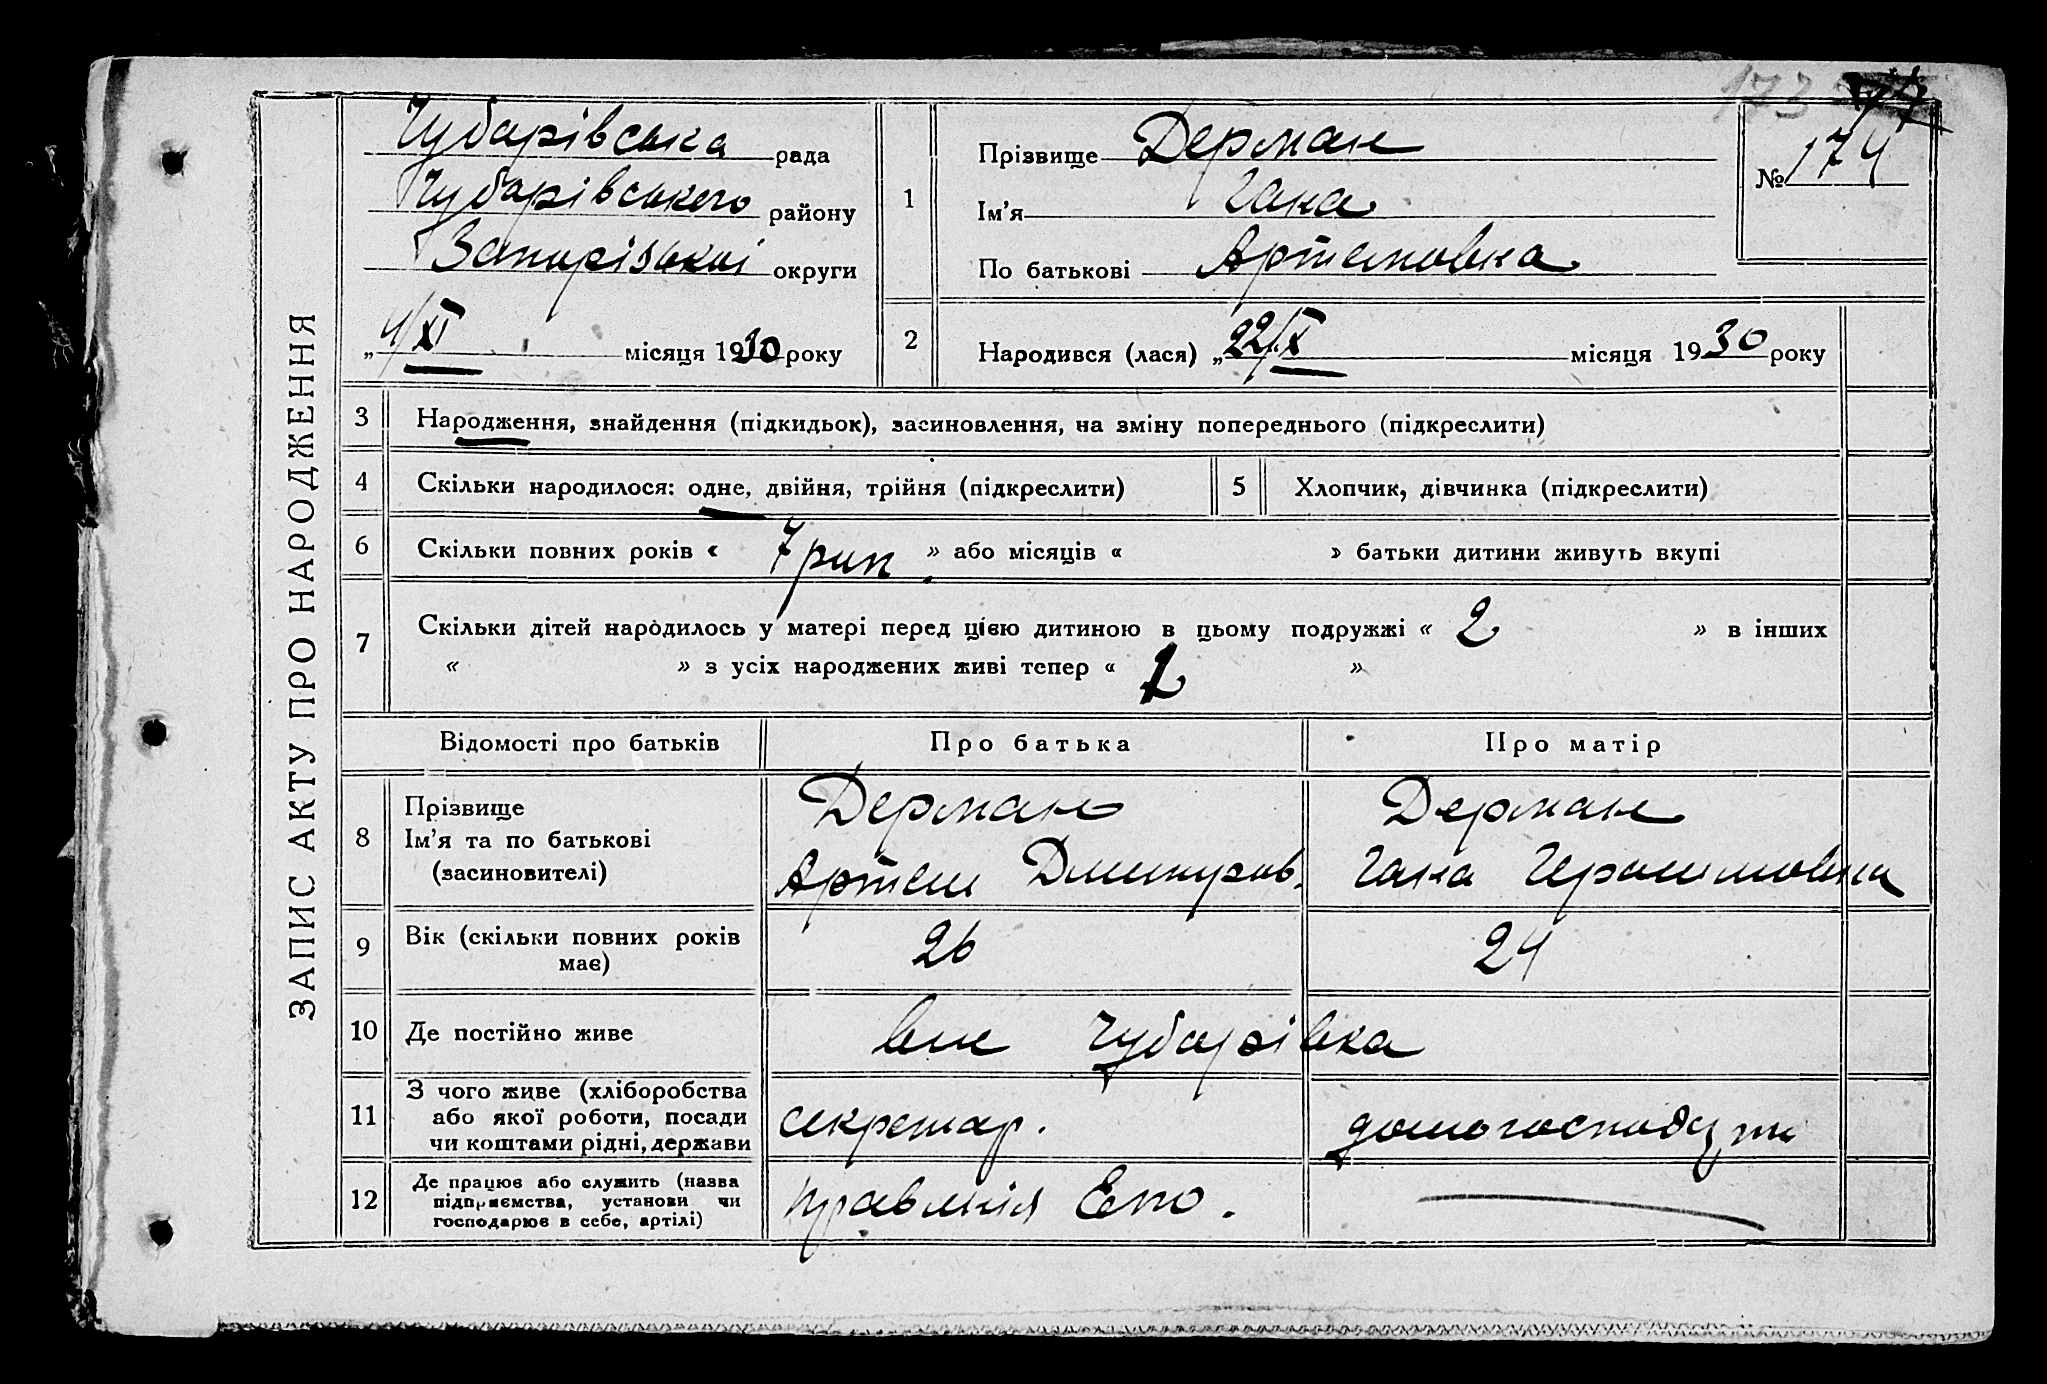 173
ЗАПИС АКТУ ПРО НАРОДЖЕННЯ
Чубарівська рада
Чубарівського району
Запорізької округи
„ 4/XI місяця 1930 року
1
Прізвище Дерман
Ім'я Гана
По батькові Артемовна
№ 174
2
Народився (лася) „ 22/X „ місяця 1930 року
3 Народження, знайдення (підкидьок), засиновлення, на зміну попереднього (підкреслити)
4 Скільки народилося: одне, двійня, трійня (підкреслити)
5 Хлопчик, дівчинка (підкреслити)
6 Скільки повних років « 7 рик » або місяців « » батьки дитини живуть вкупі
7 Скільки дітей народилось у матері перед цією дитиною в цьому подружжі « 2 » в інших
« » з усіх народжених живі тепер « »
Відомості про батьків Про батька Про матір
8 Прізвище
Ім'я та по батькові
(засиновителі)
Дерман
Артем Дмитров.
Дерман
Гана Герасимовна
9 Вік (скільки повних років
має)
26
24
10 Де постійно живе
Чубарівка
11 З чого живе (хліборобства
або якої роботи, посади
чи коштами рідні, держави
секретар.
12 Де працює або служить (назва
підприємства, установи чи
господарює в себе, артілі)
правління Епо.